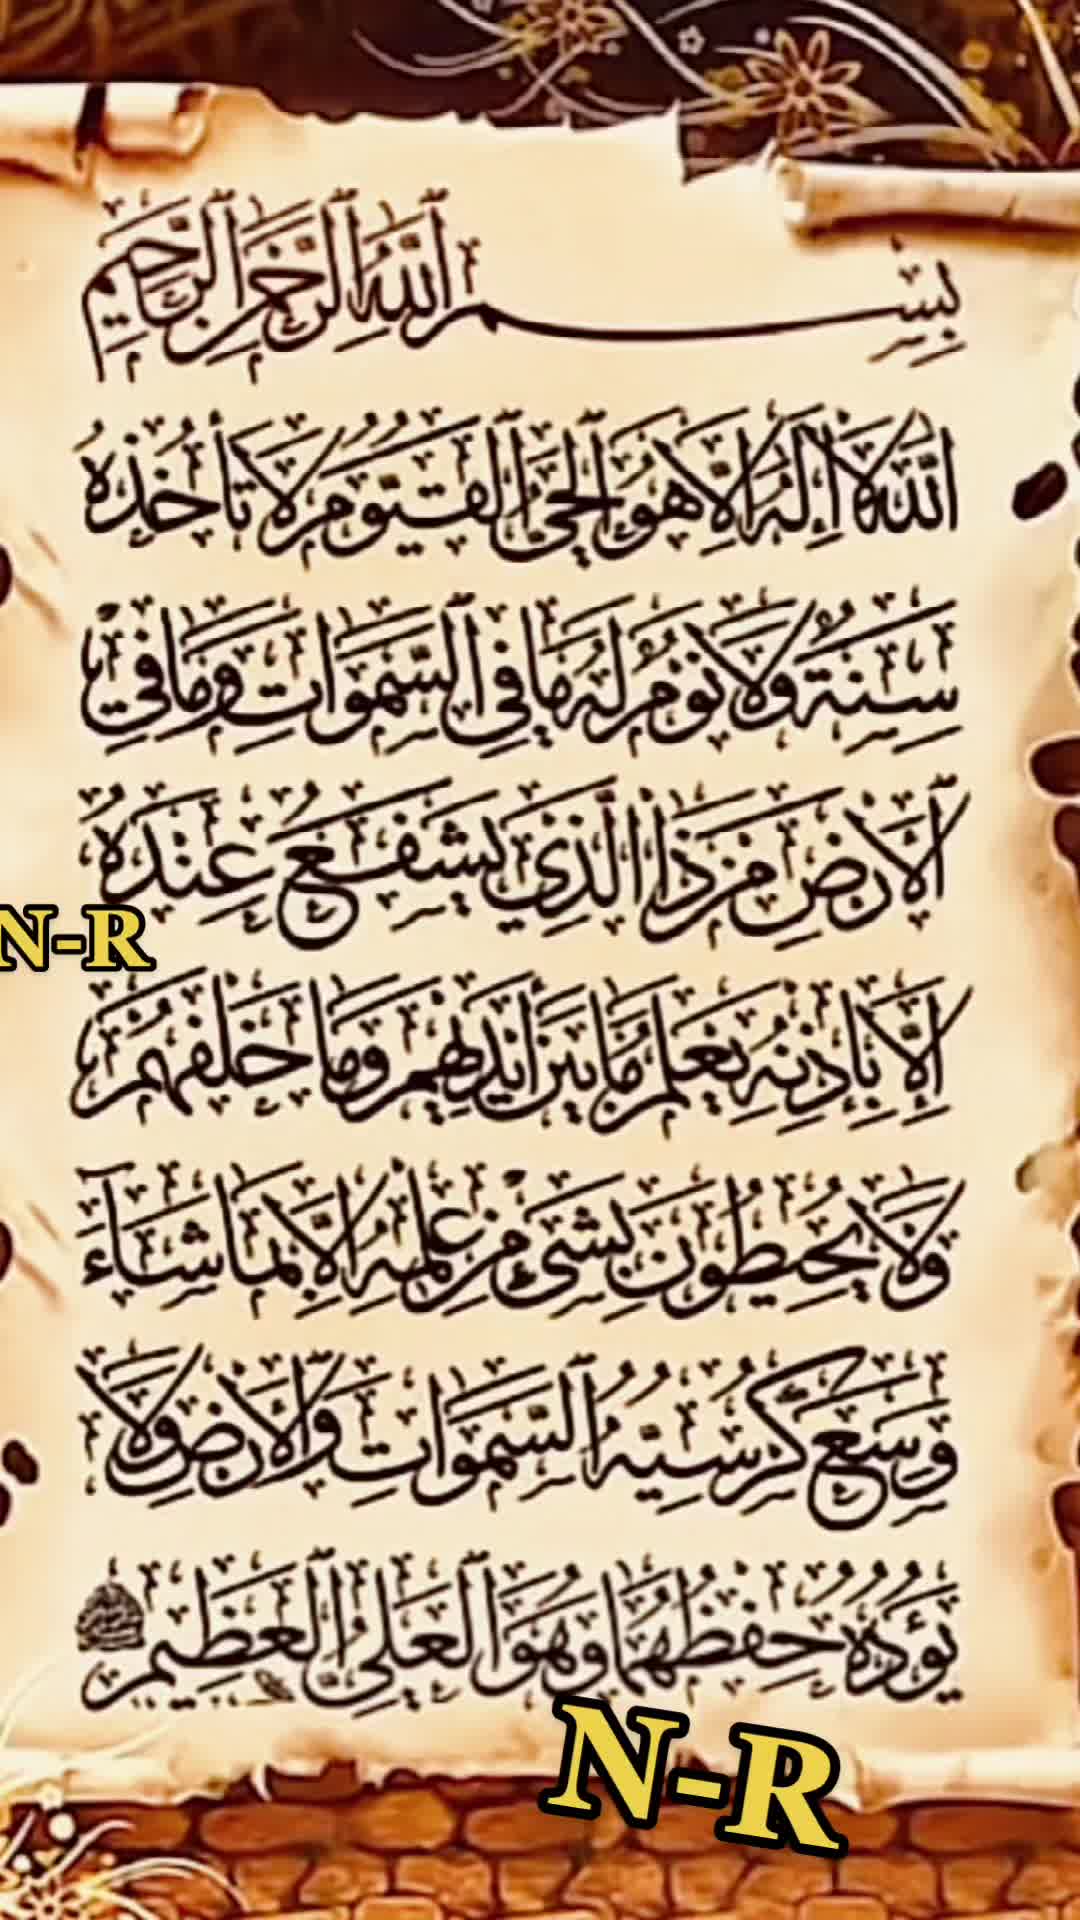 بِسْمِ اللَّهِ الرَّحْمَٰنِ الرَّحِيمِ
اللَّهُ لَا إِلَٰهَ إِلَّا هُوَ الْحَيُّ الْقَيُّومُ لَا تَأْخُذُهُ
سِنَةٌ وَلَا نَوْمٌ لَهُ مَا فِي السَّمَوَاتِ وَمَا فِي
الْأَرْضِ مَنْ ذَا الَّذِي يَشْفَعُ عِنْدَهُ
إِلَّا بِإِذْنِهِ يَعْلَمُ مَا بَيْنَ أَيْدِيهِمْ وَمَا خَلْفَهُمْ
وَلَا يُحِيطُونَ بِشَيْءٍ مِنْ عِلْمِهِ إِلَّا بِمَا شَاءَ
وَسِعَ كُرْسِيُّهُ السَّمَوَاتِ وَالْأَرْضَ وَلَا
يَؤُدُهُ حِفْظُهُمَا وَهُوَ الْعَلِيُّ الْعَظِيمُ
N-R
N-R